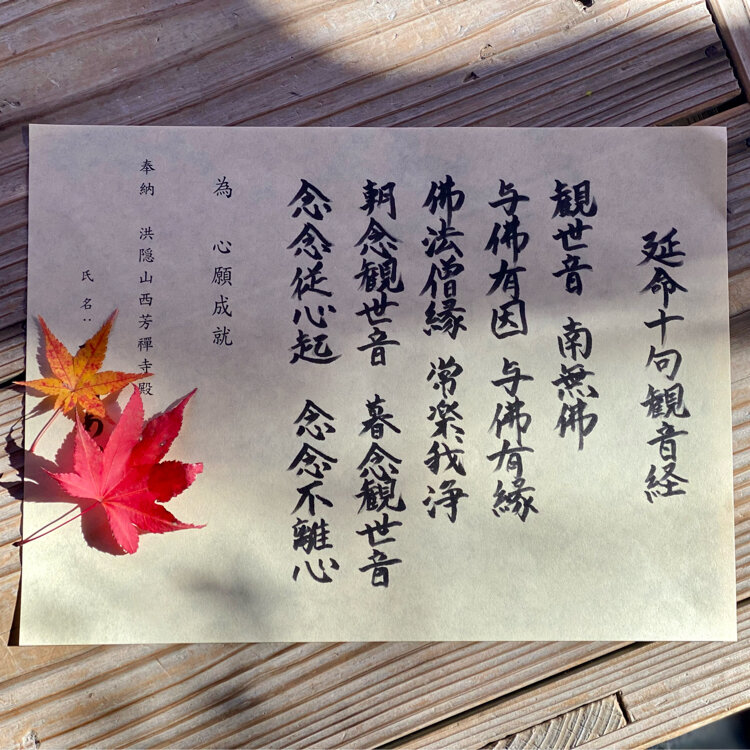 延命十句観音経
観世音 南無佛
与佛有因 与佛有縁
佛法僧縁 常楽我浄
朝念観世音 暮念観世音
念念従心起 念念不離心
為 心願成就
奉納 洪隠山西芳禪寺殿
氏名: